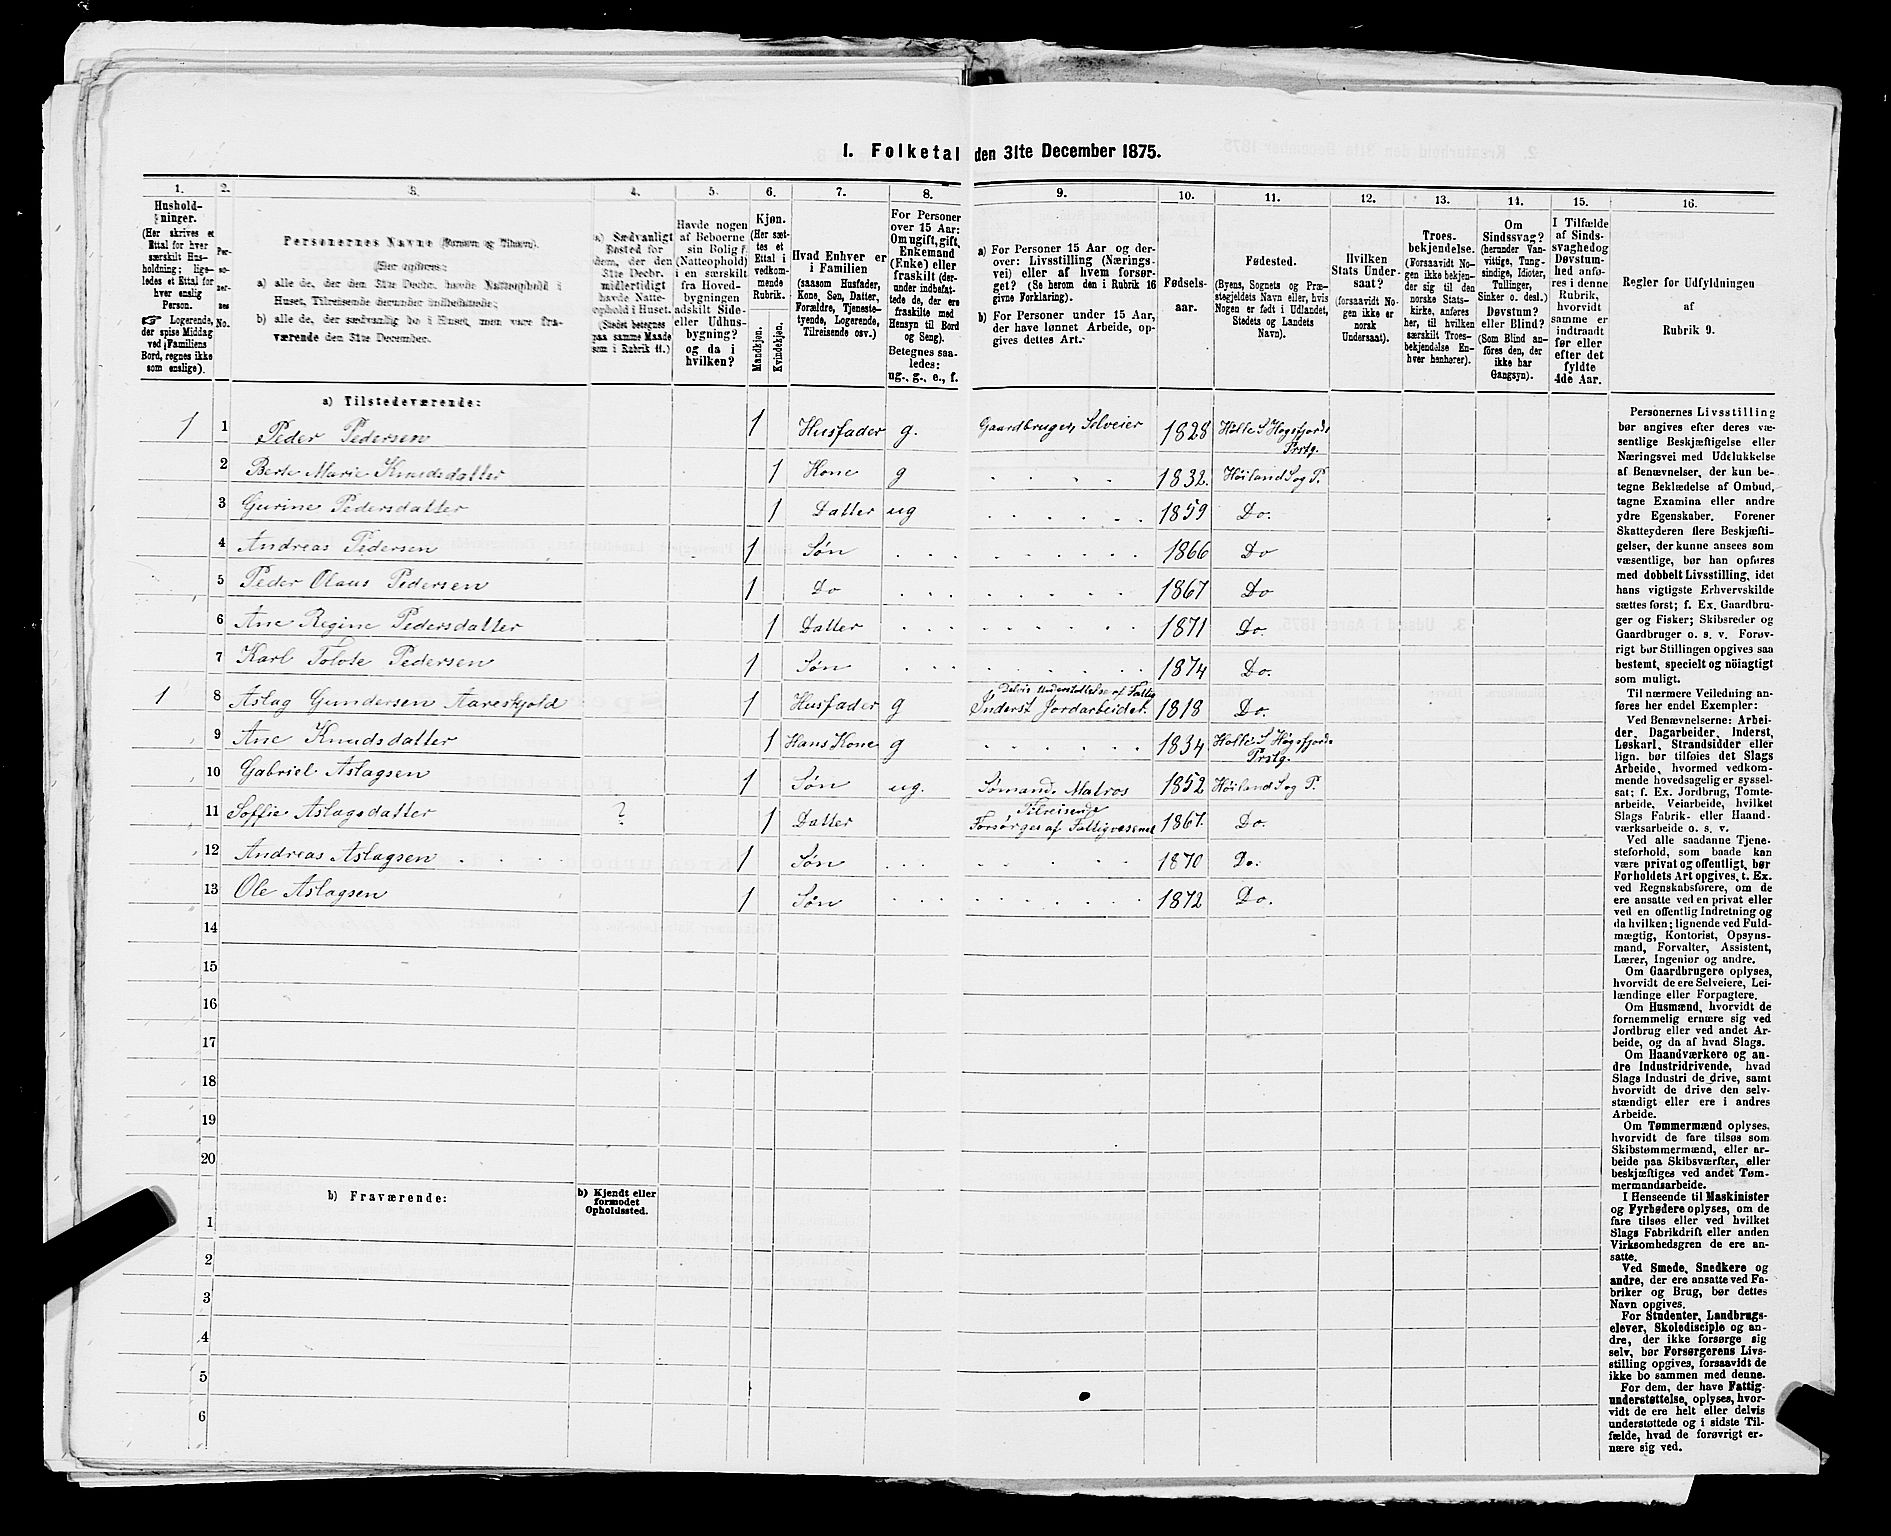 1. Folketal den 31te December 1875.
1. 2. 3. 4. 5. 6. 7. 8. 9. 10. 11. 12. 13. 14. 15. 16.
Hushold-
ninger.
(Her skrives et
Ettal for hver
særskilt Hus-
holdning; lige-
ledes et Ettal for
hver enslig
Person.
☞ Logerende,
der spise Middag
ved Familiens
Bord, regnes ikke
som enslige).
Per-
so-
ner-
nes
No.
Personernes Navne (Fornavn og Tilnavn).
(Her opføres:
a) alle de, der den 31te Decbr. havde Natteophold i
Huset, Tilreisende derunder indbefattede;
b) alle de, der sædvanlig bo i Huset, men vare fra-
værende den 31te December.
a) Sædvanligt
Bosted for
dem, der den
31te Decbr.
midlertidigt
havde Natte-
ophold i Huset.
(Stedet betegnes
paa samme Maade
som i Rubrik 11.)
Havde nogen
af Beboerne
sin Bolig
(Natteophold)
i en særskilt
fra Hoved-
bygningen
adskilt Side-
eller Udhus-
bygning?
og da i
hvilken?
Kjøn.
(Her sæt-
tes et
Ettal i
vedkom-
mende
Rubrik.
Mandkjøn.
Kvindekjøn.
Hvad Enhver er
i Familien
(saasom Husfader,
Kone, Søn, Datter,
Forældre, Tjeneste-
tyende, Logerende,
Tilreisende osv.)
For Personer
over 15 Aar:
Om ugift, gift,
Enkemand
(Enke) eller
fraskilt (der-
under indbefat-
tede de, der ere
fraskilte med
Hensyn til Bord
og Seng).
Betegnes saa-
ledes:
ug., g., e., f.
a) For Personer 15 Aar og der-
over: Livsstilling (Nærings-
vei) eller af hvem forsør-
get? (Se herom den i Rubrik 16
givne Forklaring).
b) For Personer under 15 Aar,
der have lønnet Arbeide, op-
gives dettes Art.
Fødsels-
aar.
Fødested.
(Byens, Sognets og Præ-
stegjeldets Navn eller, hvis
Nogen er født i Udlandet,
Stedets og Landets
Navn).
Hvilken
Stats Under-
saat?
(forsaavidt No-
gen ikke er
norsk
Undersaat).
Troes-
bekjendelse.
(Forsaavidt No-
gen ikke bekjen-
der sig til den
norske Stats-
kirke, anføres
her, til hvilken
særskilt Troes-
bekjendelse En-
hver henhører).
Om
Sindssvag?
(herunder Van-
vittige, Tung-
sindige, Idioter,
Tullinger,
Sinker o. desl.)
Døvstum?
eller Blind?
(Som Blind an-
føres den, der
ikke har
Gangsyn).
I Tilfælde
af Sinds-
svaghed og
Døvstum-
hed anfø-
res i denne
Rubrik,
hvorvidt
samme er
indtraadt
før eller
efter det
fyldte
4de Aar.
Regler for Udfyldningen
af
Rubrik 9.
a) Tilstedeværende:
1 1 Peder Pedersen 1 Husfader g. Gaardbruger, Selveier 1828 Holle S Høgsfjords Prstg.
2 Berte Marie Knudsdatter 1 Kone g 1832. Høiland S og P.
3 Gurine Pedersdatter 1 Datter ug 1859 Do.
4 Andreas Pedersen 1 Søn 1866 Do
5 Peder Olaus Pedersen 1 Do 1867 Do
6 Ane Regine Pedersdatter 1 Datter 1871 Do.
7 Karl Tolote Pedersen 1 Søn 1874 Do.
1 8 Aslag Gundersen Aareskjold 1 Husfader g Delvis Understøttelse af Fattig Inderst Jordarbeidet. 1818 Do.
9 Ane Knudsdatter 1 Hans Kone g 1834 Holle S Høgsfjords Prstg.
10 Gabriel Aslagsen 1 Søn ug. Sømand Matros 1852 Høiland S og P.
11 Soffie Aslagsdatter ? 1 Datter Tilreisende Forsørges af Fattigvæsenet 1867. Do.
12 Andreas Aslagsen 1 Søn 1870 Do.
13 Ole Aslagsen 1 Søn 1872 Do.
14
15
16
17
18
19
20
b) Fraværende:
b) Kjendt eller
formodet
Opholdssted.
1
2
3
4
5
6
Personernes Livsstilling
bør angives efter deres væ-
sentlige Beskjæftigelse eller
Næringsvei med Udelukkelse
af Benævnelser, der kun be-
tegne Beklædelse af Ombud,
tagne Examina eller andre
ydre Egenskaber. Forener
Skatteyderen flere Beskjæfti-
gelser, der kunne ansees som
væsentlige, bør han opføres
med dobbelt Livsstilling, idet
hans vigtigste Erhvervskilde
sættes først; f. Ex. Gaardbru-
ger og Fisker; Skibsreder og
Gaardbruger o. s. v. Forøv-
rigt bør Stillingen opgives saa
bestemt, specielt og nöiagtigt
som muligt.
Til nærmere Veiledning an-
føres her endel Exempler:
Ved Benævnelserne: Arbei-
der, Dagarbeider, Inderst,
Løskarl, Strandsidder eller
lign. bør tilføies det Slags
Arbeide, hvormed vedkom-
mende hovedsagelig er syssel-
sat; f. Ex. Jordbrug, Tomte-
arbeide, Veiarbeide, hvilket
Slags Fabrik- eller Haand-
værksarbeide o. s. v.
Ved alle saadanne Tjene-
steforhold, som baade kan
være privat og offentligt, bør
Forholdets Art opgives, t. Ex.
ved Regnskabsførere, om de
ere ansatte ved en privat eller
ved en offentlig Indretning og
da hvilken; lignende ved Fuld-
mægtig, Kontorist, Opsyns-
mand, Forvalter, Assistent,
Lærer, Ingeniør og andre.
Om Gaardbrugere oplyses,
hvorvidt de ere Selveiere, Lei-
lændinge eller Forpagtere.
Om Husmænd, hvorvidt de
fornemmelig ernære sig ved
Jordbrug eller ved andet Ar-
beide, og da af hvad Slags.
Om Haandværkere og an-
dre Industridrivende, hvad
Slags Industri de drive, samt
hvorvidt de drive den selv-
stændigt eller ere i andres
Arbeide.
Om Tømmermænd oplyses,
hvorvidt de fare tilsøs som
Skibstømmermænd, eller ar-
beide paa Skibsværfter, eller
beskjæftiges ved andet Tøm-
mermandsarbeide.
I Henseende til Maskinister
og Fyrbødere oplyses, om de
fare tilsøs eller ved hvilket
Slags Fabrikdrift eller anden
Virksomhedsgren de ere an-
satte.
Ved Smede, Snedkere og
andre, der ere ansatte ved Fa-
briker og Brug, bør dettes
Navn opgives.
For Studenter, Landbrugs-
elever, Skoledisciple og an-
dre, der ikke forsørge sig
selv, bør Forsørgerens Livs-
stilling opgives, forsaavidt de
ikke bo sammen med denne.
For dem, der have Fattig-
understøttelse, oplyses, hvor-
vidt de ere helt eller delvis
understøttede og i sidste Til-
fælde, hvad de forøvrigt er-
nære sig ved.